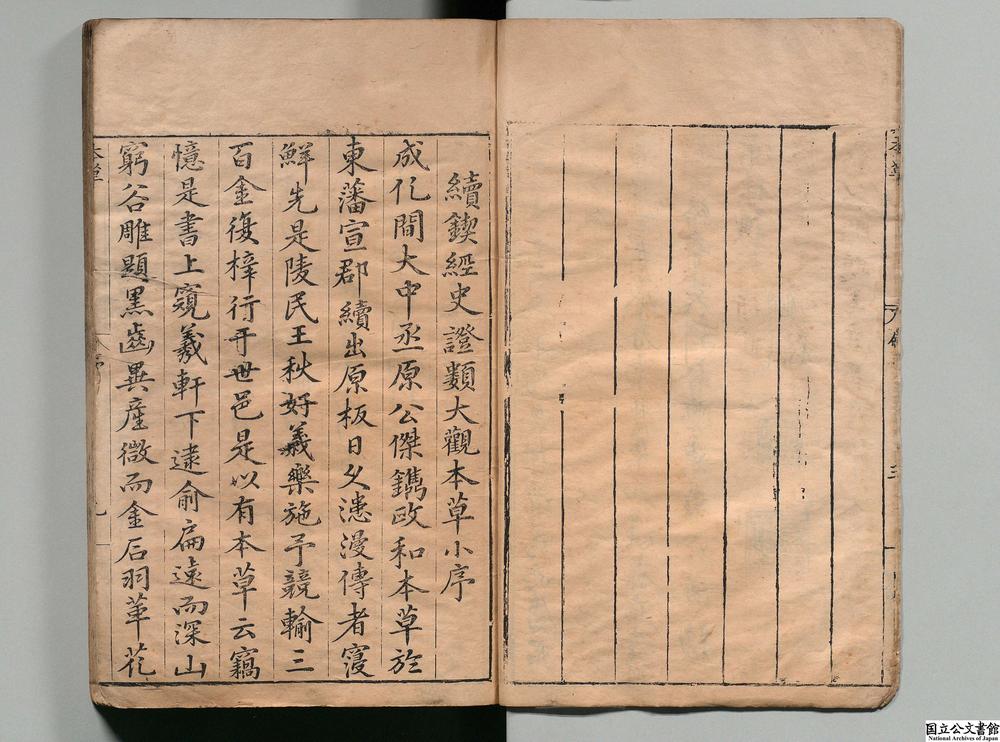 續鍥經史證類大觀本草小序
成化間大中丞原公傑鐫政和本草於
東藩宣郡續出原板日乆漶漫傳者寖
鮮先是陵民王秋好義樂施予競輸三
百金復梓行于世邑是以有本草云竊
憶是書上窺羲軒下逮俞扁遠而深山
窮谷雕題黑齒異産微而金石羽革花
国立公文書館
National Archives of Japan